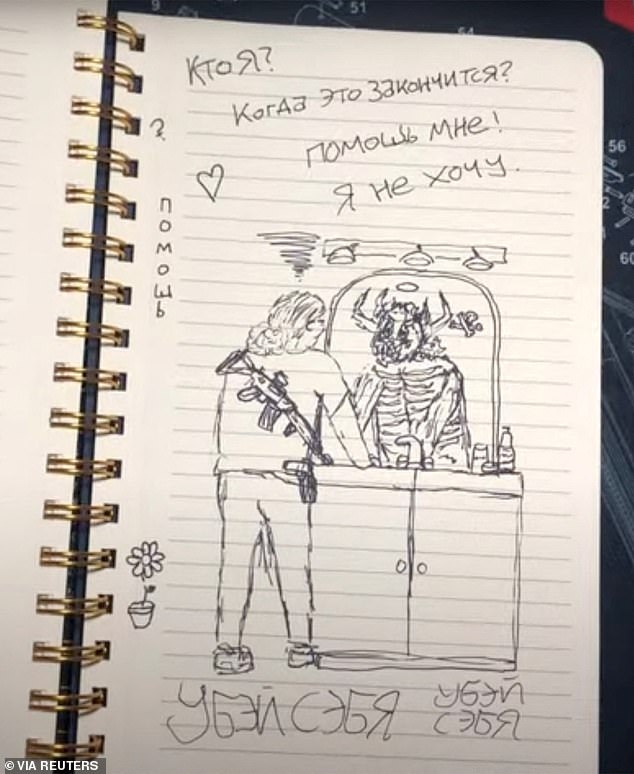 Кто я?
Когда это закончится?
Помошь мне!
Я не хочу.
?
помошь
Убэй сэбя
Убэй
сэбя
51
54
56
60
© VIA REUTERS